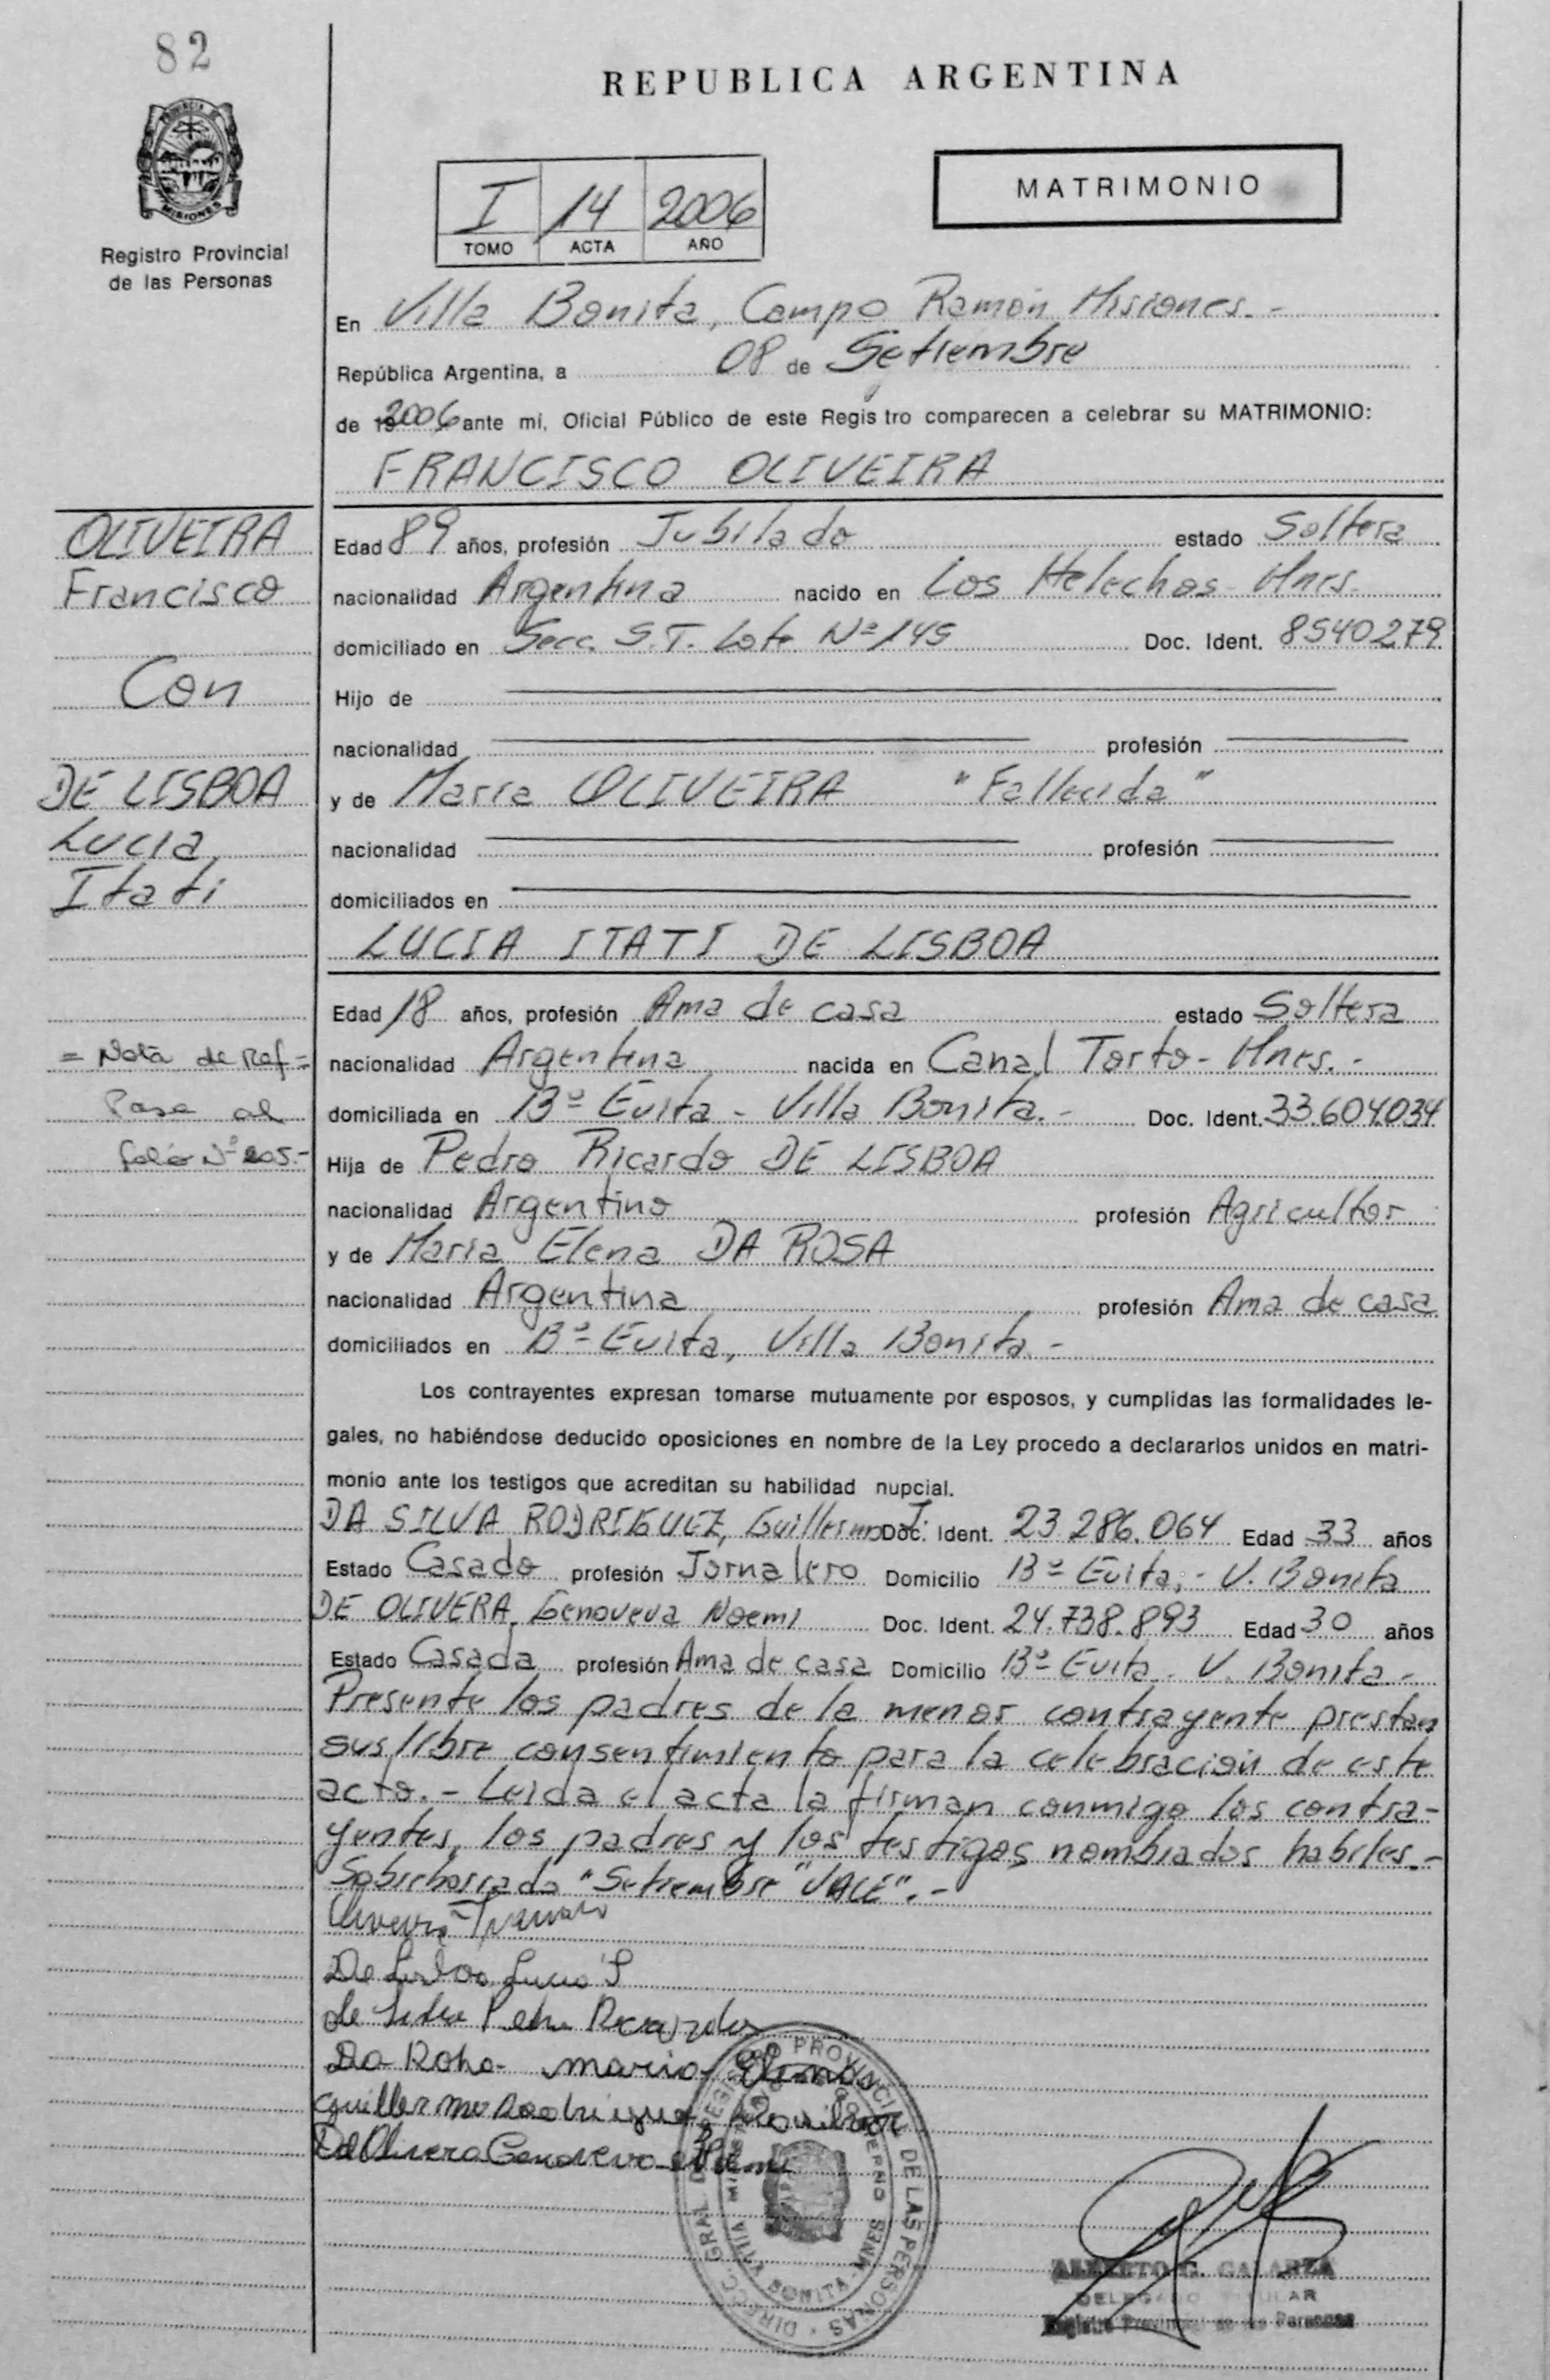 82
REPUBLICA ARGENTINA
PROVINCIA DE
MISIONES
Registro Provincial
de las Personas
MATRIMONIO
I 14 2006
TOMO ACTA AÑO
En Villa Bonita, Campo Ramón Misiones.-
República Argentina, a 08 de Setiembre
de 2006 ante mi, Oficial Público de este Registro comparecen a celebrar su MATRIMONIO:
FRANCISCO OLIVEIRA
OLIVEIRA
Francisco
Con
DE LISBOA
Lucia
Itati
= Nota de Ref =
Pase al
folio Nº 205.-
Edad 89 años, profesión Jubilado estado Soltero
nacionalidad Argentina nacido en Los Helechos - Mnes.
domiciliado en Secc. S.T. Lote Nº 145 Doc. Ident. 8540279
Hijo de
nacionalidad profesión
y de Maria OLIVEIRA "Fallecida"
nacionalidad profesión
domiciliados en
LUCIA ITATI DE LISBOA
Edad 18 años, profesión Ama de casa estado Soltera
nacionalidad Argentina nacida en Canal Torto - Mnes.-
domiciliada en Bº Evita - Villa Bonita.- Doc. Ident. 33.604.034
Hija de Pedro Ricardo DE LISBOA
nacionalidad Argentino profesión Agricultor
y de Maria Elena DA ROSA
nacionalidad Argentina profesión Ama de casa
domiciliados en Bº Evita, Villa Bonita.-
Los contrayentes expresan tomarse mutuamente por esposos, y cumplidas las formalidades le-
gales, no habiéndose deducido oposiciones en nombre de la Ley procedo a declararlos unidos en matri-
monio ante los testigos que acreditan su habilidad nupcial.
DA SILVA RODRIGUEZ, Guillermo J. Doc. Ident. 23.286.064 Edad 33 años
Estado Casado profesión Jornalero Domicilio Bº Evita.- V. Bonita
DE OLIVERA, Genoveva Noemi Doc. Ident. 24.738.893 Edad 30 años
Estado Casada profesión Ama de casa Domicilio Bº Evita - V. Bonita -
Presente los padres de la menor contrayente prestan
sus libre consentimiento para la celebración de este
acto.- Leida el acta la firman conmigo los contra-
yentes, los padres y los testigos nombrados habiles.-
Sobreborrado "Setiembre" VALE".-
Oliveira
De Lisboa Lucia I
de Pedro Ricardo
Da Rosa maria
Guillermo
De Olivera Genoveva Noemi
DIRECC. GRAL. DE REGISTRO PROVINCIAL DE LAS PERSONAS
MINISTERIO DE GOBIERNO
VILLA BONITA - MNES
ALBERTO C. GALARZA
DELEGADO TITULAR
Registro Provincial de las Personas